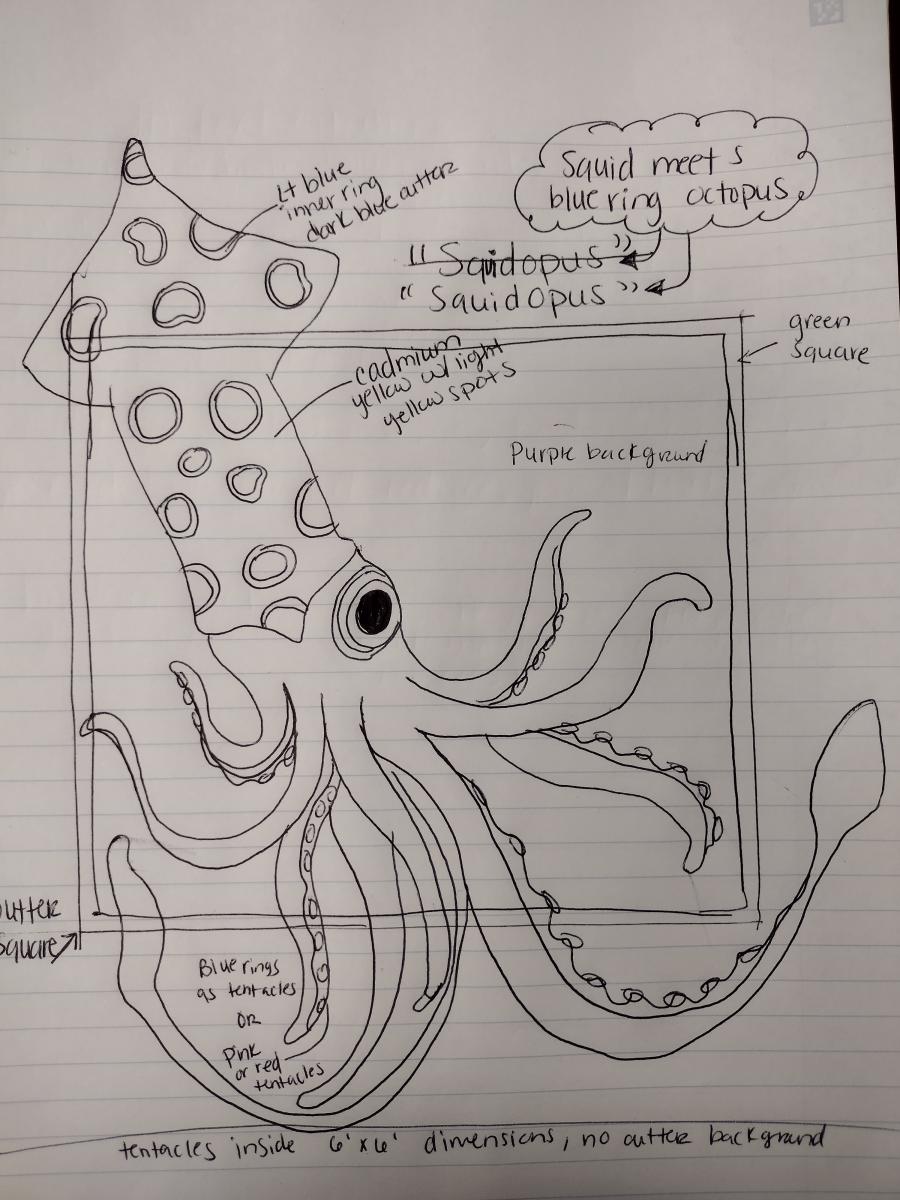 Squid meets
blue ring octopus
Lt blue
inner ring
dark blue outter
"Squidopus"
"SquidOpus"
green
square
cadmium
yellow w/ light
yellow spots
Purple background
outter
square
Blue rings
as tentacles
OR
Pink
or red
tentacles
tentacles inside 6'x6' dimensions, no outter background